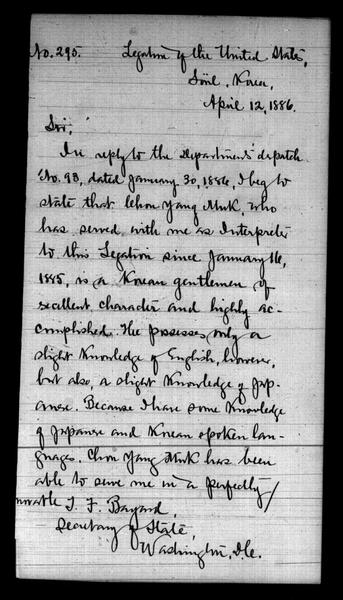 No. 295. Legation of the United States,
Söul, Korea,
April 12, 1886.
Sir;
In reply to the Department's dispatch
No. 93, dated January 30, 1886, I beg to
state that Chon Yang Muk, who
has served with me as Interpreter
to this Legation since January 16,
1885, is a Korean gentleman of
excellent character and highly ac-
complished. He possesses only a
slight knowledge of English, however,
but also, a slight knowledge of Jap-
anese. Because I have some knowledge
of Japanese and Korean spoken lan-
guages. Chon Yang Muk has been
able to serve me in a perfectly
norable T. F. Bayard,
Secretary of State,
Washington, D.C.